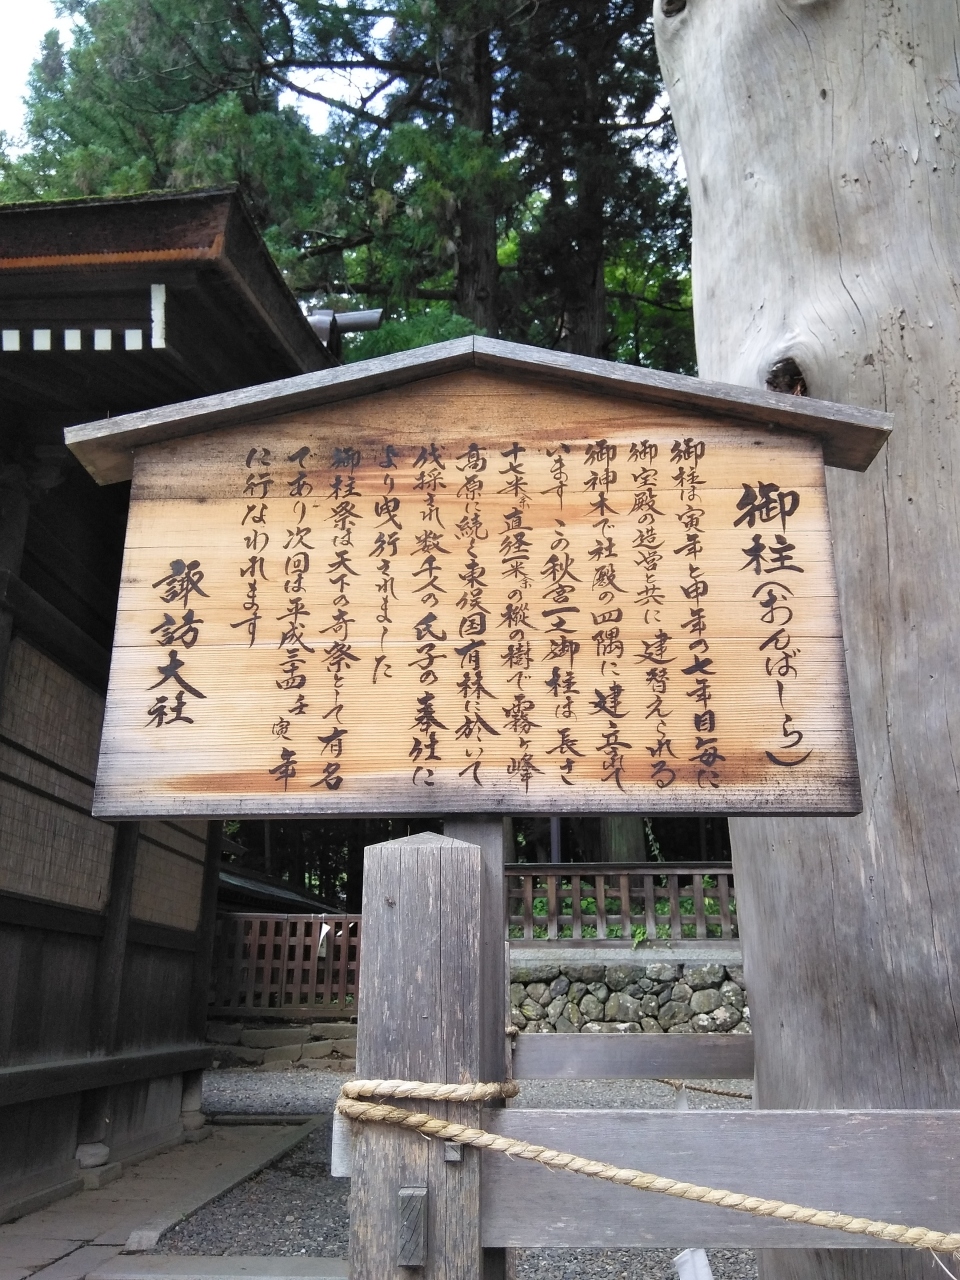 御柱（おんばしら）
御柱は寅年と申年の七年目毎に
御宝殿の造営と共に建替えられる
御神木で社殿の四隅に建立されて
います この秋宮一之御柱は長さ
十七米余直径一米余の樅の樹で霧ヶ峰
高原に続く東俣国有林に於いて
伐採され数千人の氏子の奉仕に
より曳行されました
御柱祭は天下の奇祭として有名
であり次回は平成三十四壬寅年
に行なわれます
諏訪大社